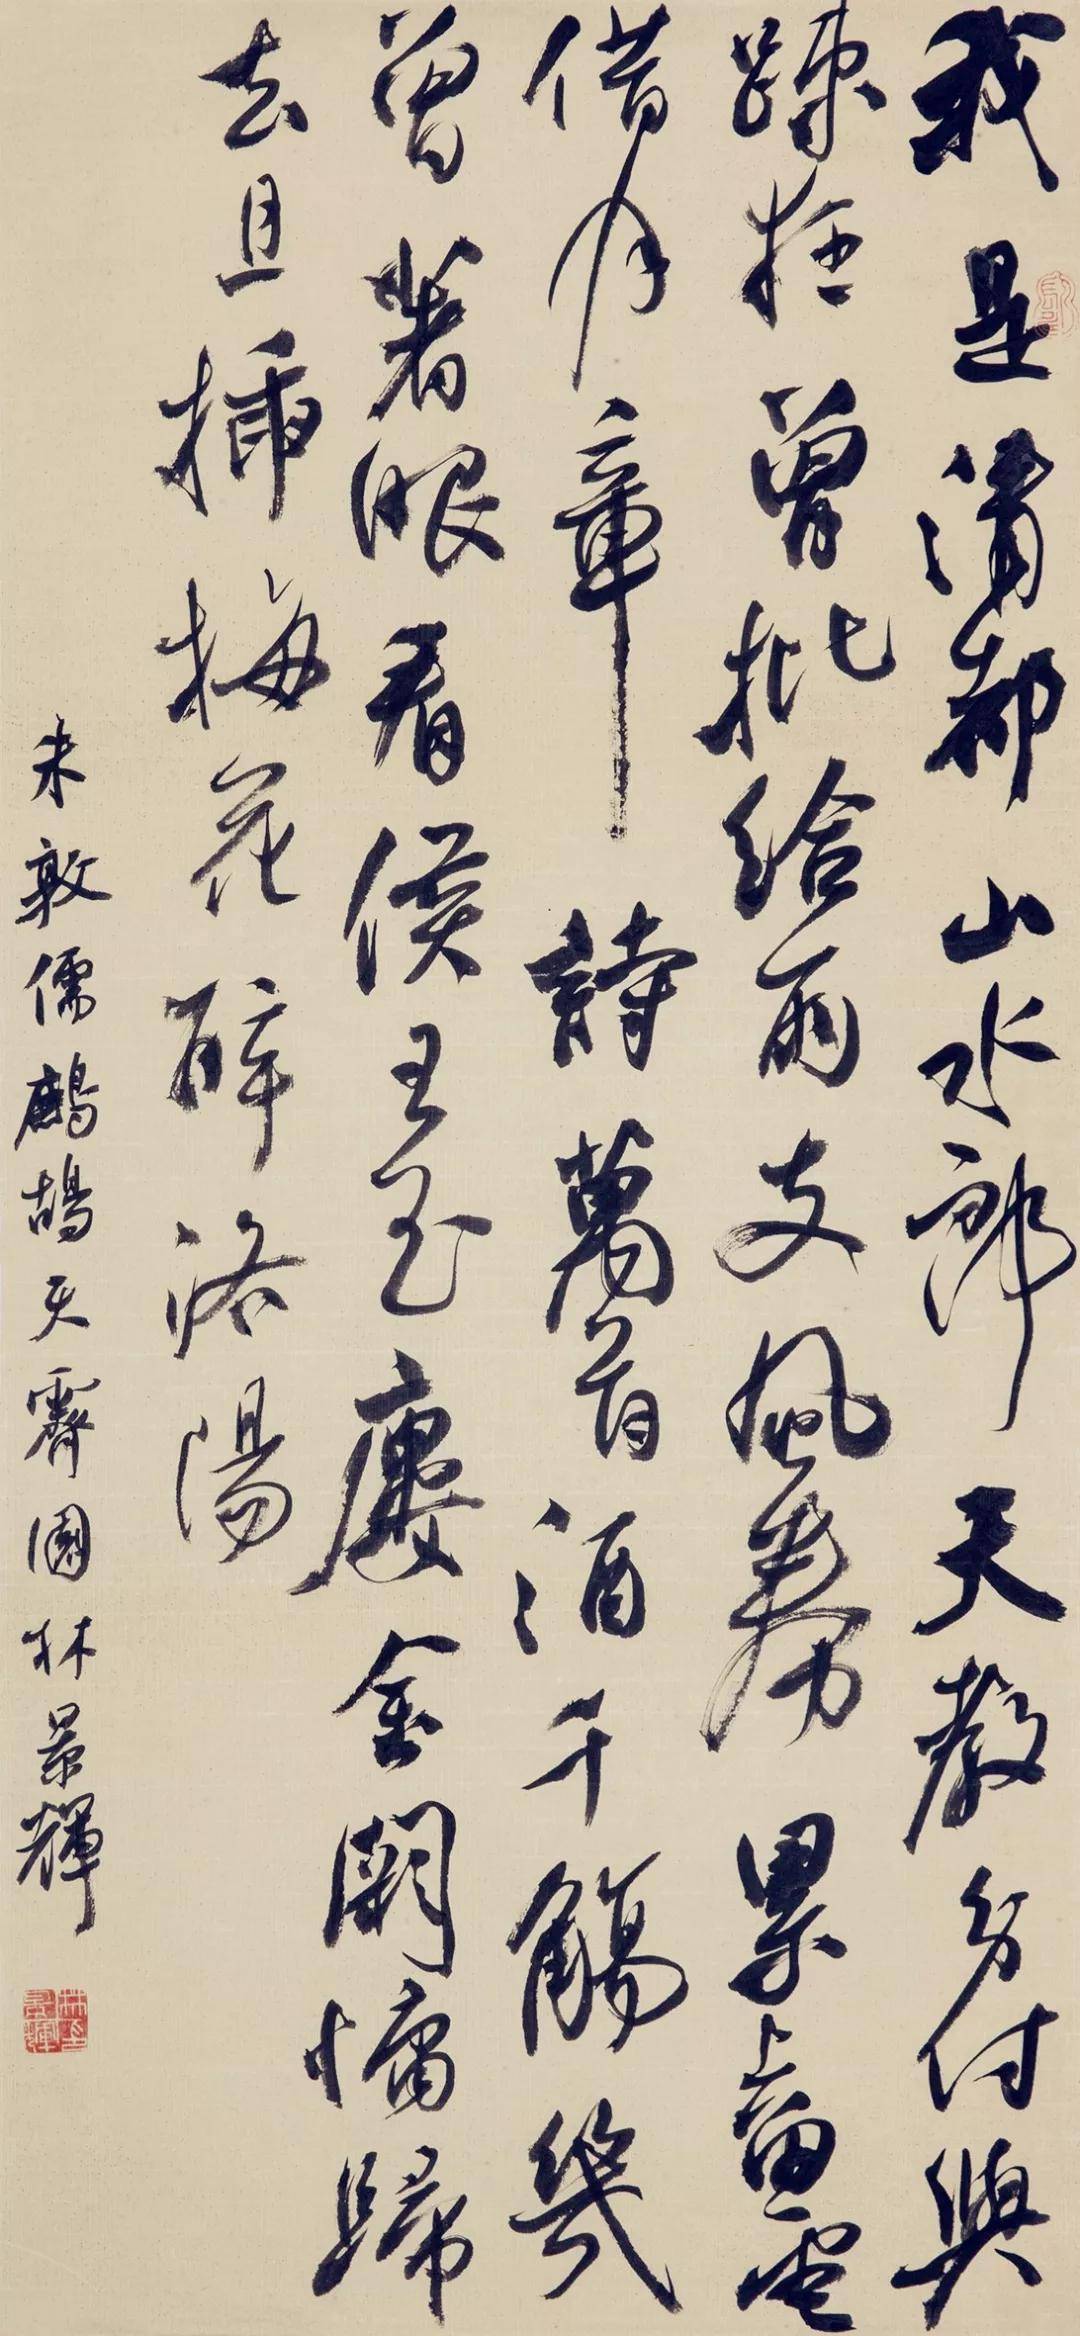 我是清都山水郎天教分付與
踈狂曾批給雨支風券累上留雲
借月章詩萬首酒千觴幾
曾著眼看侯王玉廔金闕慵歸
去且插梅花醉洛陽
朱敦儒鷓鴣天霽園林景輝